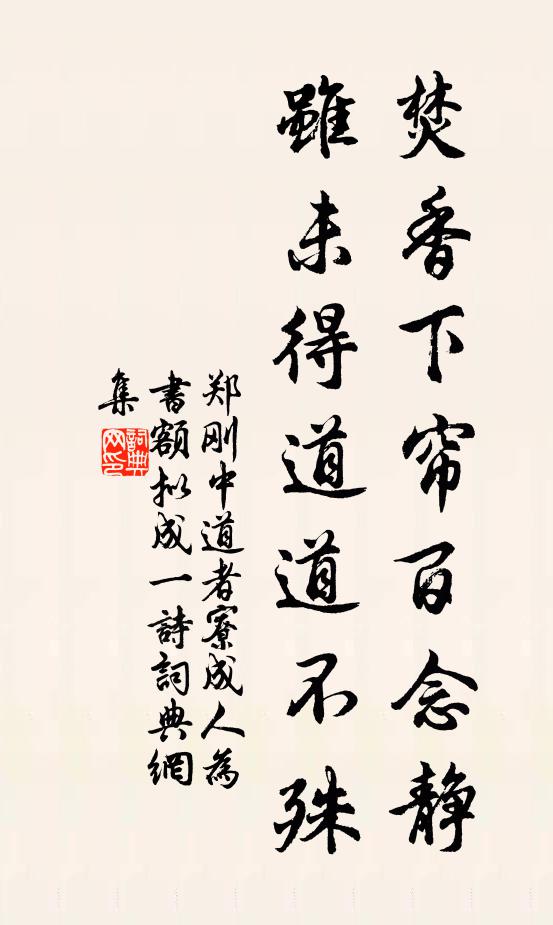 焚香下帘百念静
雖未得道道不殊
郑刚中道者寮成人為
書額拟成一詩詞典網
集
詞典
网印